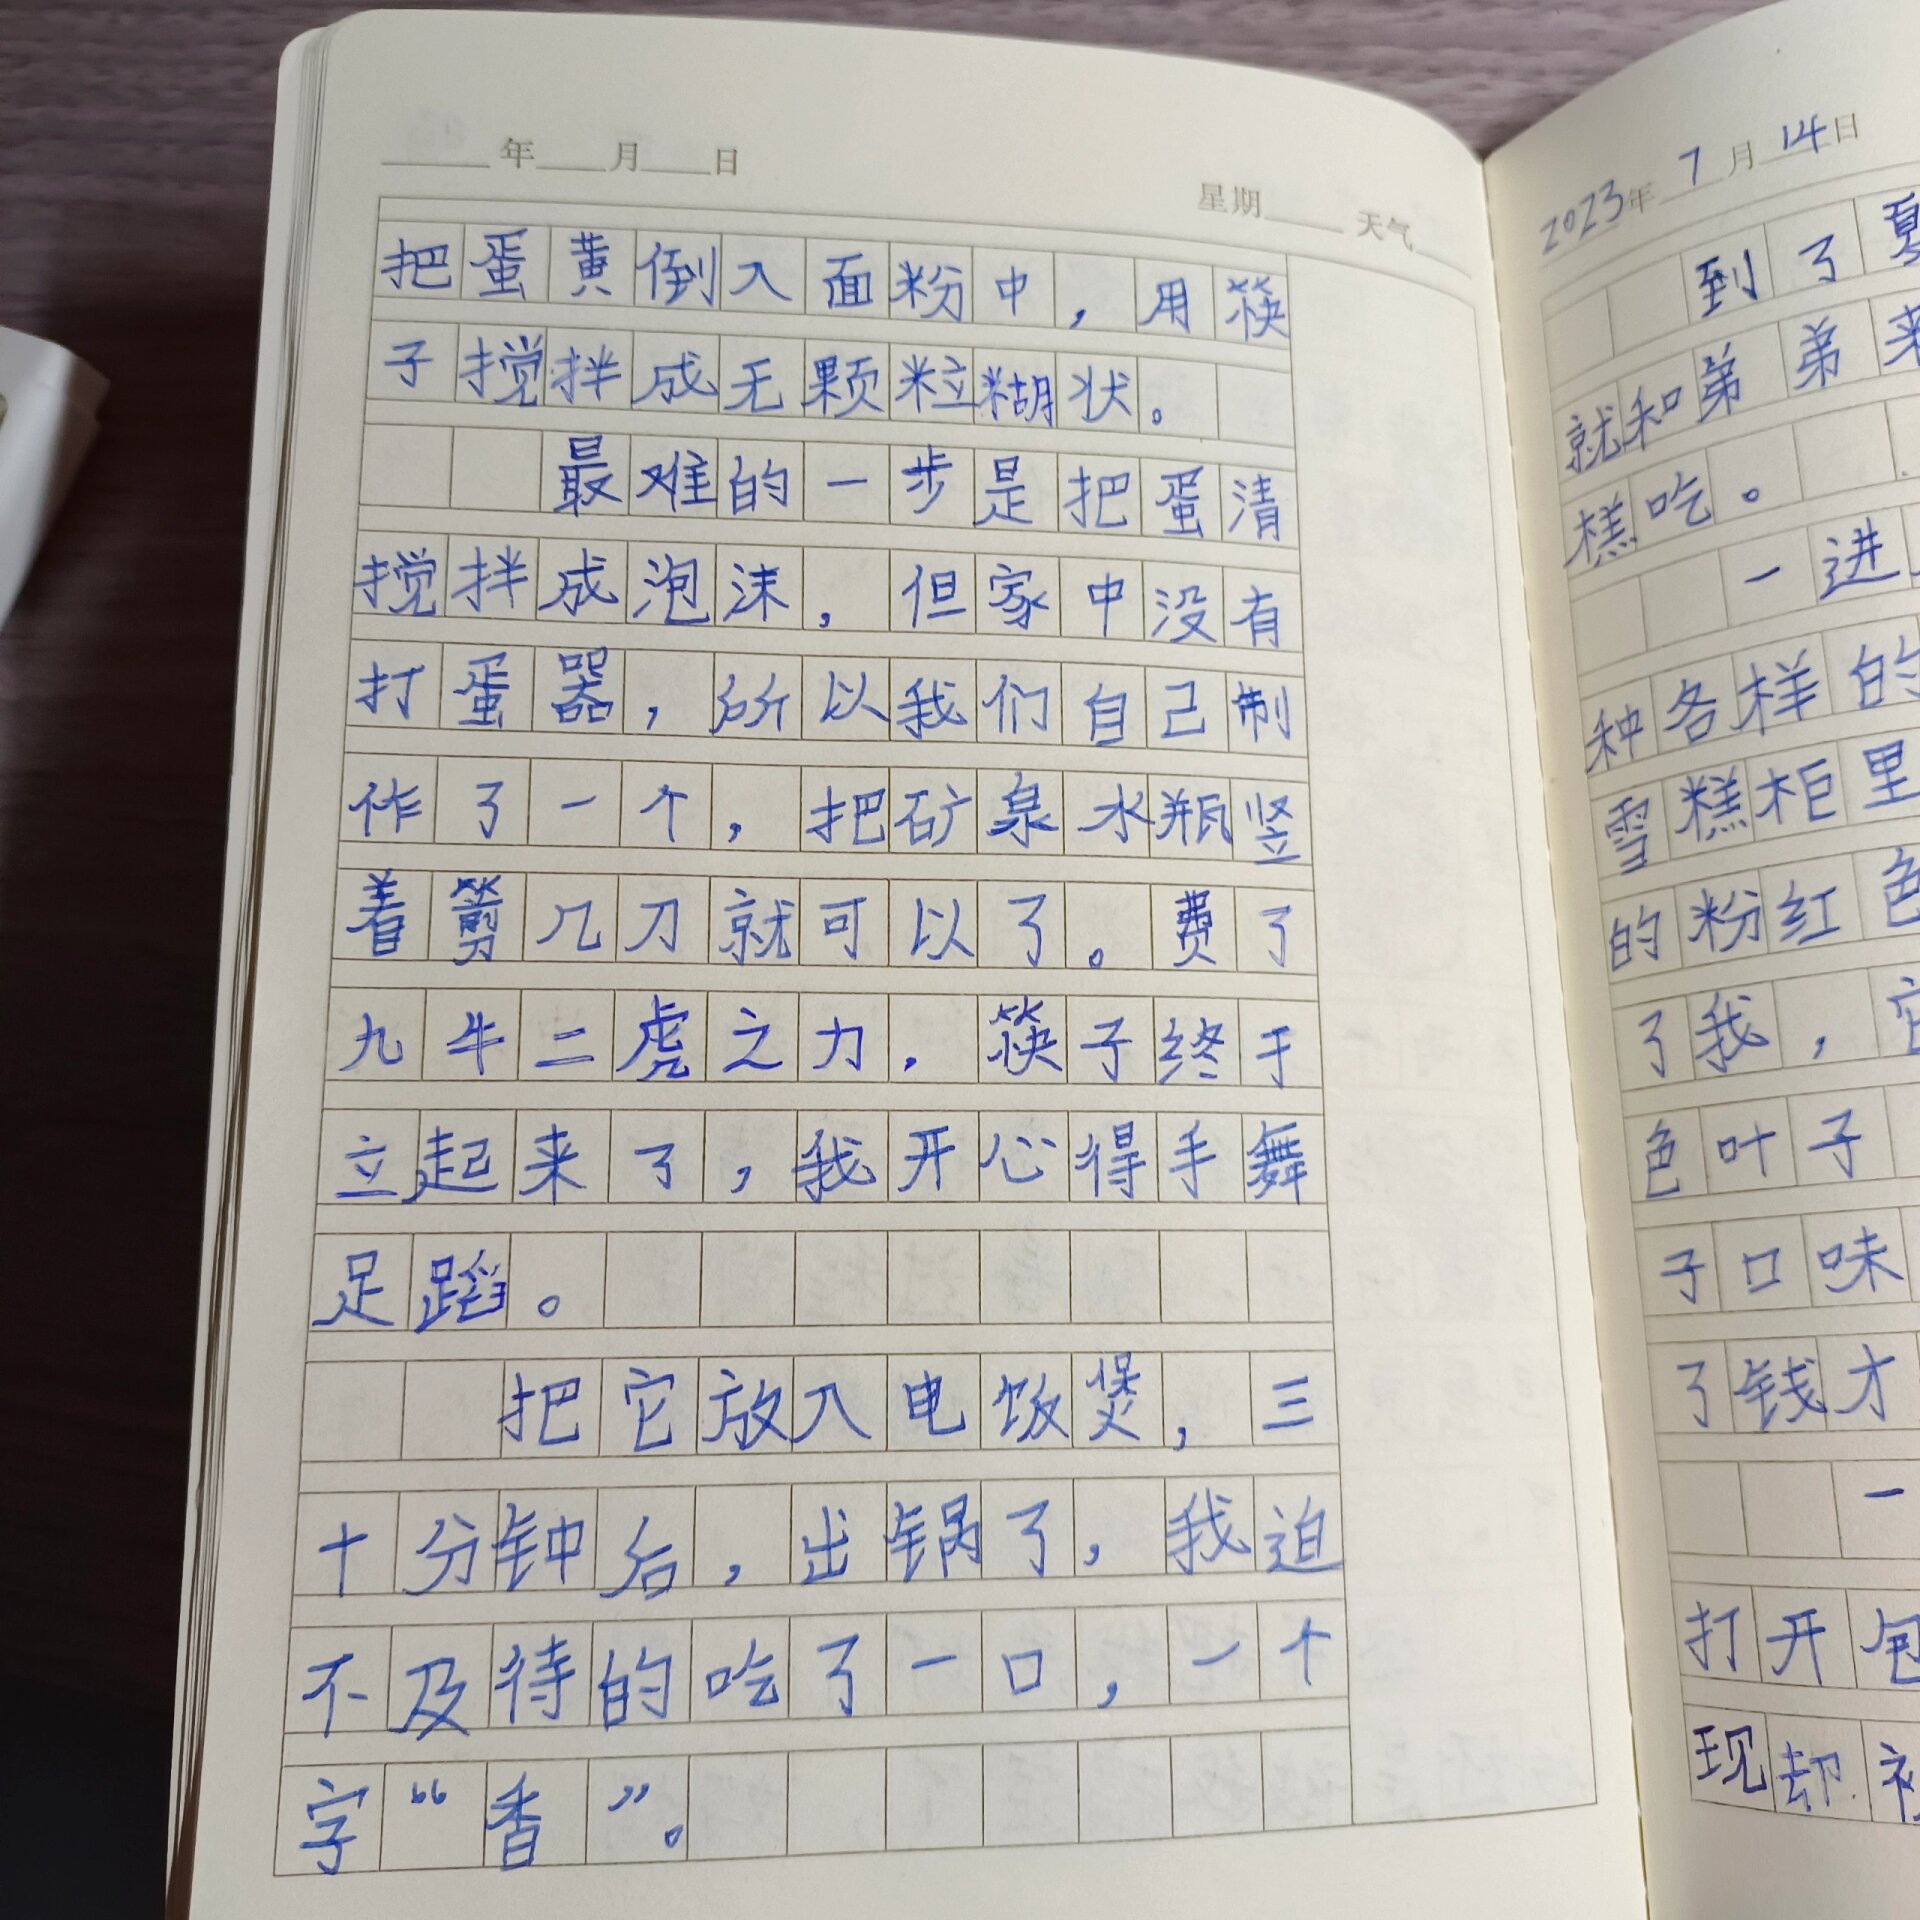 ____年____月____日
星期____天气
把蛋黄倒入面粉中，用筷
子搅拌成无颗粒糊状。
最难的一步是把蛋清
搅拌成泡沫，但家中没有
打蛋器，所以我们自己制
作了一个，把矿泉水瓶竖
着剪几刀就可以了。费了
九牛二虎之力，筷子终于
立起来了，我开心得手舞
足蹈。
把它放入电饭煲，三
十分钟后，出锅了，我迫
不及待的吃了一口，一个
字“香”。
2023年7月14日
到了夏
就和弟弟来
糕吃。
一进
种各样的
雪糕柜里
的粉红色
了我，它
色叶子
子口味
了钱才
一
打开包
现却